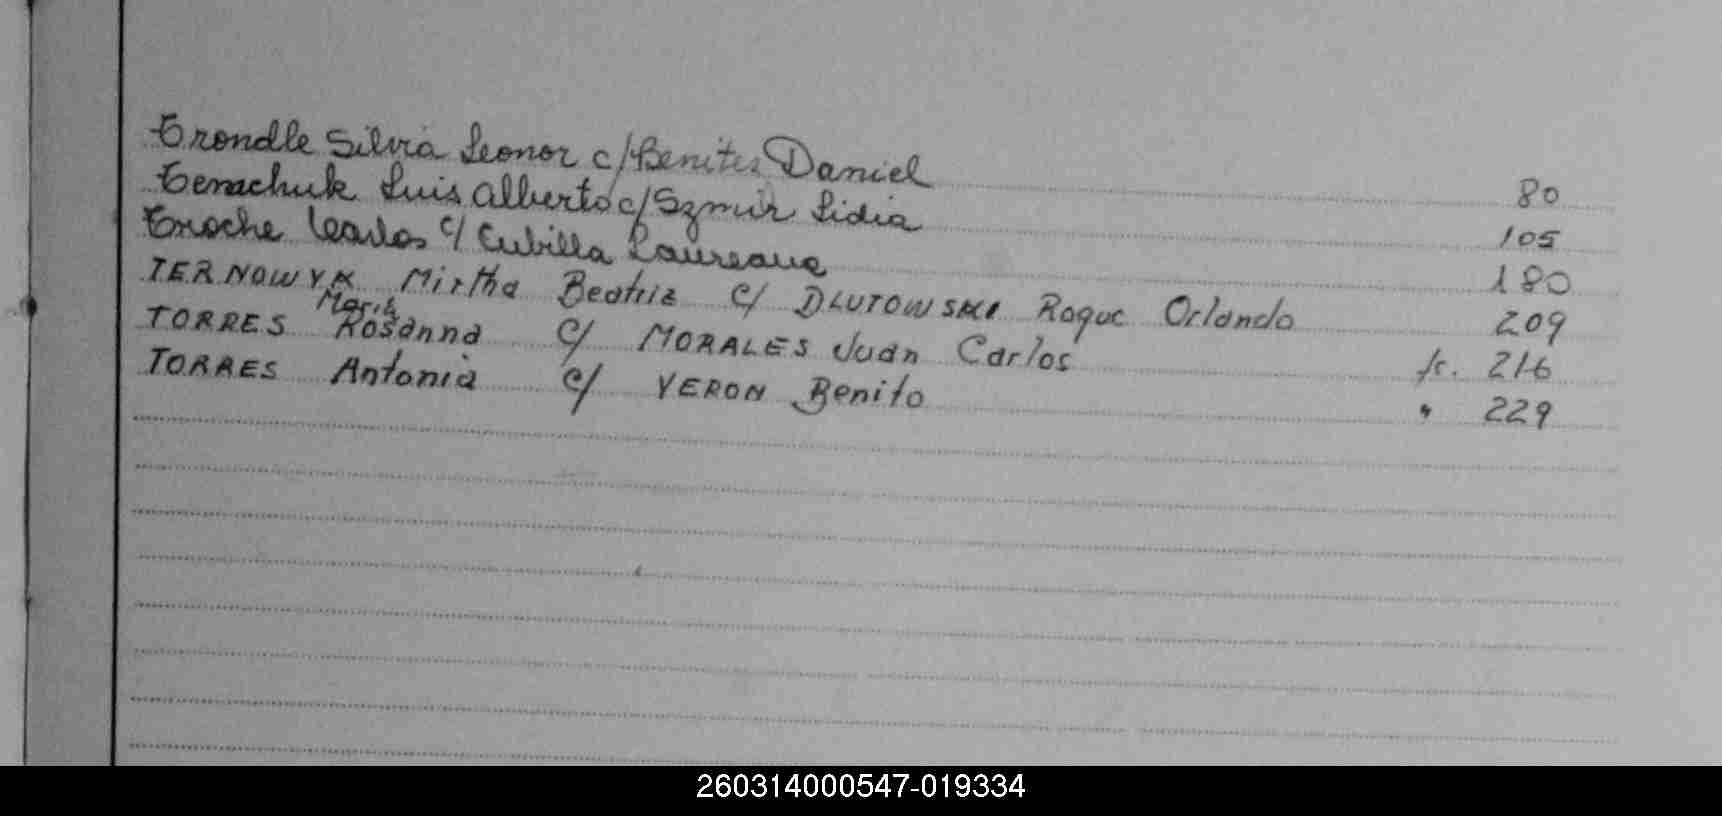 Trondle Silvia Leonor c/ Benites Daniel 80
Luis Alberto c/ Szmir Lidia 105
Troche Carlos c/ Cubilla Laureana 180
TERNOWYK Mirtha Beatriz c/ DLUTOWSKI Roque Orlando 209
TORRES María Rosanna c/ MORALES Juan Carlos fs. 216
TORRES Antonia c/ VERON Benito " 229
260314000547-019334